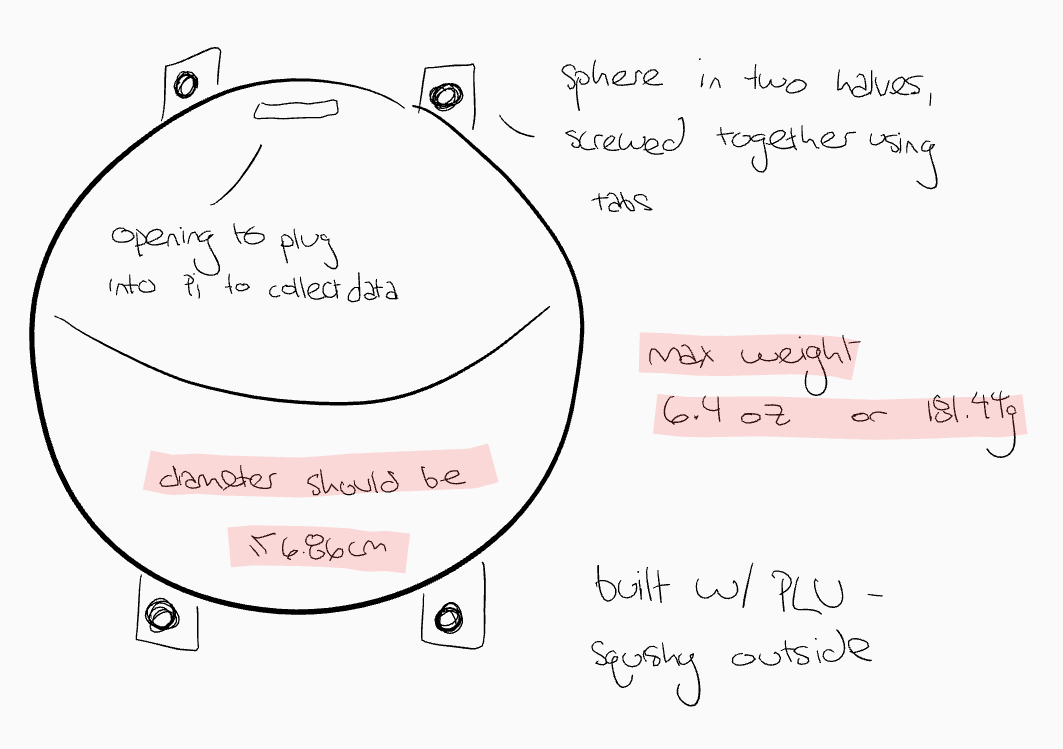 sphere in two halves,
screwed together using
tabs
opening to plug
into Pi to collect data
max weight
6.4 oz or 181.44g
diameter should be
≤ 6.86cm
built w/ PLU -
squishy outside